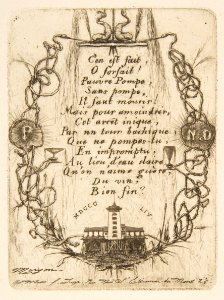 C'en est fait
O forfait!
Pauvre Pompe,
Sans pompe,
Il faut mourir!
Mais pour amoindrir,
Cet arrêt inique,
Par un tour bachique,
Que ne pompes-tu,
En impromptu,
Au lieu d'eau claire
Qu'on n'aime guère,
Du vin?
Bien fin?
MDCCC LIV